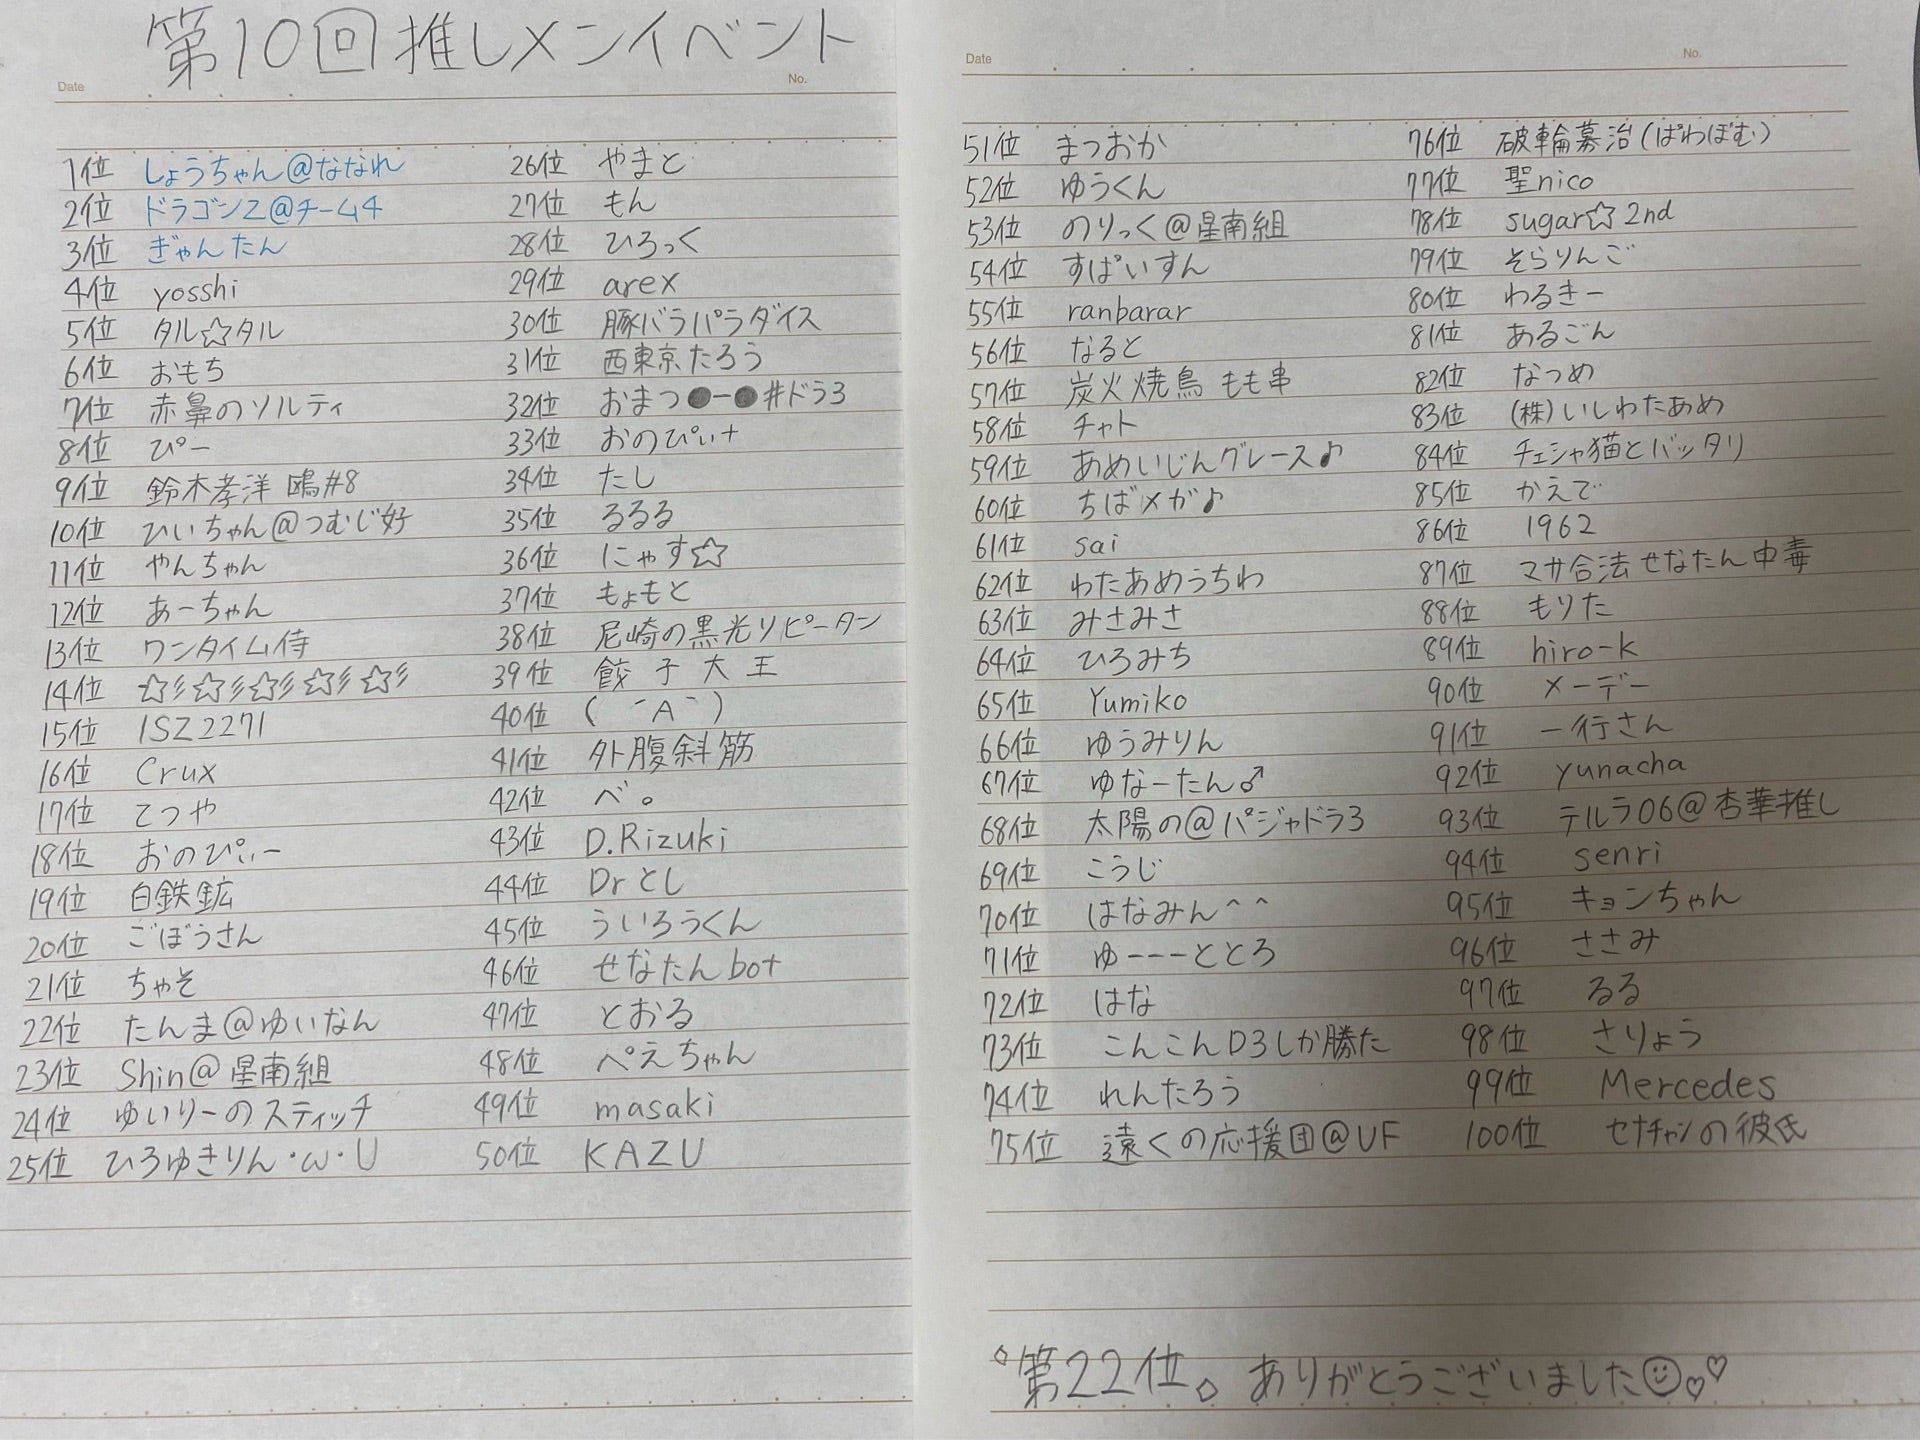 第10回推しメンイベント
Date
No.
1位 しょうちゃん@ななれ
2位 ドラゴンZ@チーム4
3位 ぎゃんたん
4位 yosshi
5位 タル☆タル
6位 おもち
7位 赤鼻のソルティ
8位 ぴー
9位 鈴木孝洋 鴎#8
10位 ひいちゃん@つむじ好
11位 やんちゃん
12位 あーちゃん
13位 ワンタイム侍
14位 ☆彡☆彡☆彡☆彡☆彡
15位 ISZ2271
16位 Crux
17位 てつや
18位 おのぴぃー
19位 白鉄鉱
20位 ごぼうさん
21位 ちゃそ
22位 たんま@ゆいなん
23位 Shin@星南組
24位 ゆいりーのスティッチ
25位 ひろゆきりん・ω・U
26位 やまと
27位 もん
28位 ひろっく
29位 arex
30位 豚バラパラダイス
31位 西東京たろう
32位 おまつ●ー●#ドラ3
33位 おのぴぃ+
34位 たし
35位 るるる
36位 にゃす☆
37位 もょもと
38位 尼崎の黒光りピータン
39位 餃子大王
40位 (ˉAˉ)
41位 外腹斜筋
42位 べ。
43位 D.Rizuki
44位 Drとし
45位 ういろうくん
46位 せなたんbot
47位 とおる
48位 ぺえちゃん
49位 masaki
50位 KAZU
Date
No.
51位 まつおか
52位 ゆうくん
53位 のりっく@星南組
54位 すぱいすん
55位 ranbarar
56位 なると
57位 炭火焼鳥 もも串
58位 チャト
59位 あめいじんグレース♪
60位 ちばメガ♪
61位 sai
62位 わたあめうちわ
63位 みさみさ
64位 ひろみち
65位 Yumiko
66位 ゆうみりん
67位 ゆなーたん♂
68位 太陽の@パジャドラ3
69位 こうじ
70位 はなみん^^
71位 ゆーーーととろ
72位 はな
73位 こんこんD3しか勝た
74位 れんたろう
75位 遠くの応援団@UF
76位 破輪募治(ぱわぼむ)
77位 聖nico
78位 sugar☆2nd
79位 そらりんご
80位 わるきー
81位 あるごん
82位 なつめ
83位 (株)いしわたあめ
84位 チェシャ猫とバッタリ
85位 かえで
86位 1962
87位 マサ合法せなたん中毒
88位 もりた
89位 hiro-k
90位 メーデー
91位 一行さん
92位 yunacha
93位 テルラ06@杏華推し
94位 senri
95位 キョンちゃん
96位 ささみ
97位 るる
98位 さりょう
99位 Mercedes
100位 セナチャンの彼氏
◇第22位◇ ありがとうございました☺♡♡